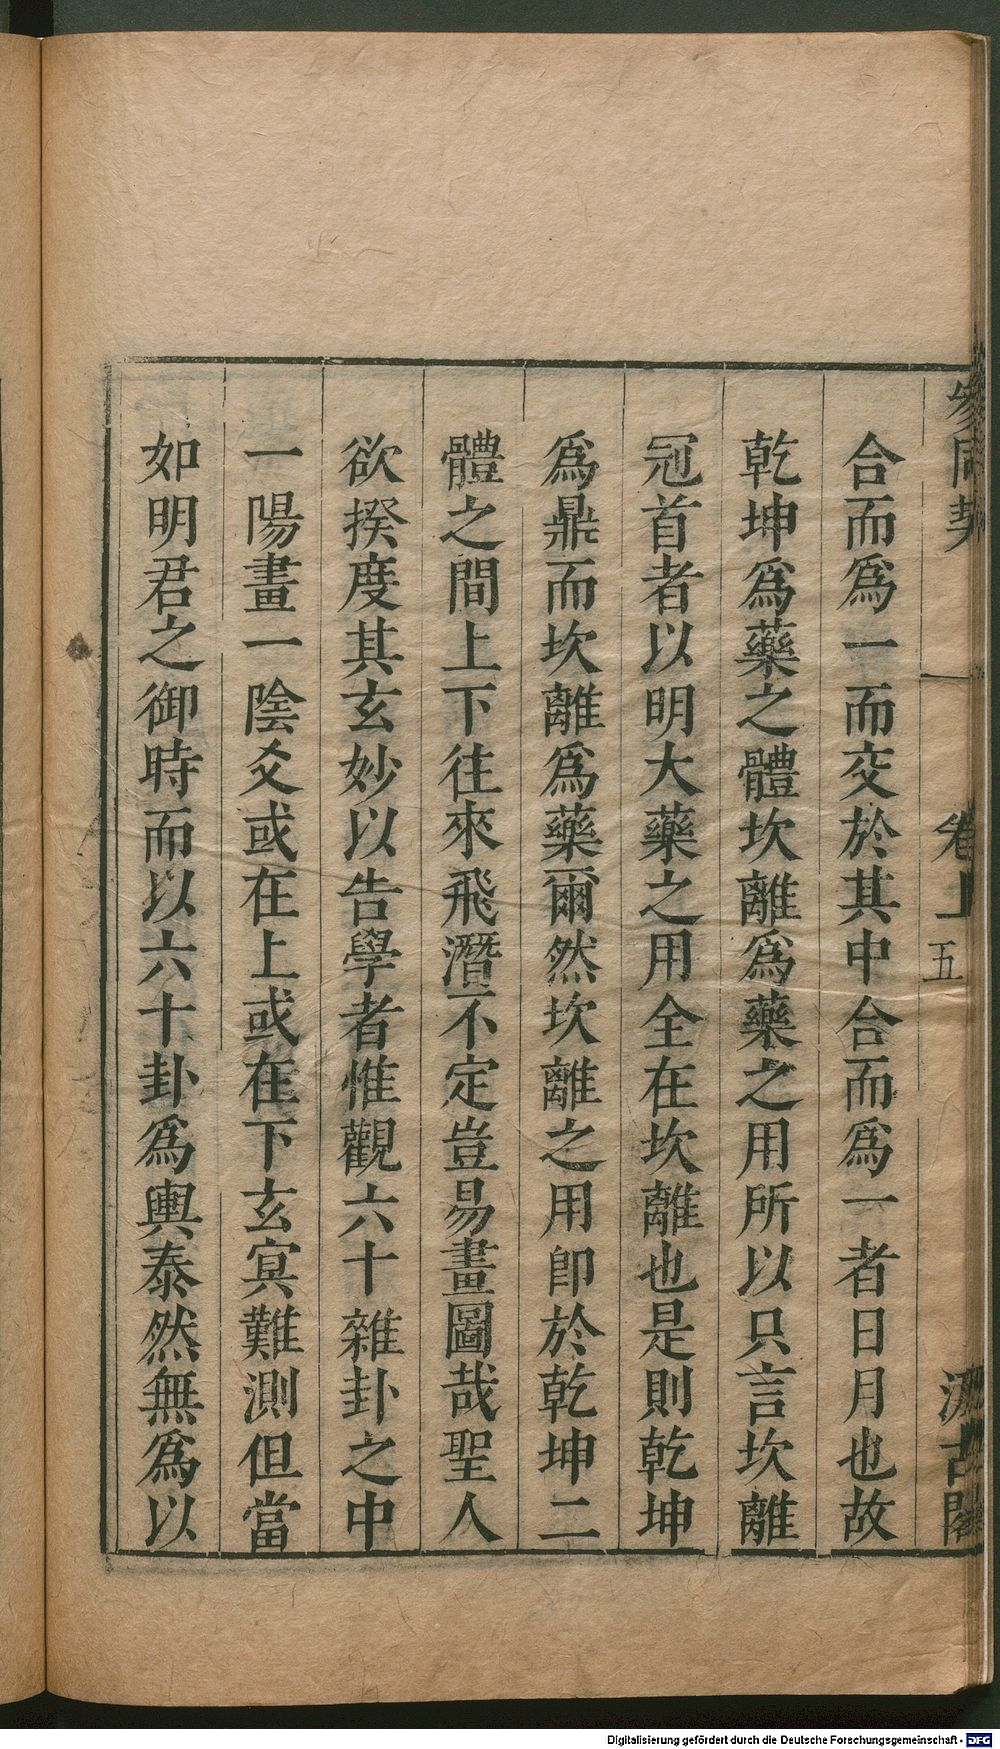 參同契 卷上 五 汲古閣
合而爲一而交於其中合而爲一者日月也故
乾坤爲藥之體坎離爲藥之用所以只言坎離
冠首者以明大藥之用全在坎離也是則乾坤
爲鼎而坎離爲藥爾然坎離之用卽於乾坤二
體之間上下往來飛潛不定豈易畫圖哉聖人
欲揆度其玄妙以告學者惟觀六十雜卦之中
一陽畫一陰爻或在上或在下玄冥難測但當
如明君之御時而以六十卦爲輿泰然無爲以
Digitalisierung gefördert durch die Deutsche Forschungsgemeinschaft - DFG